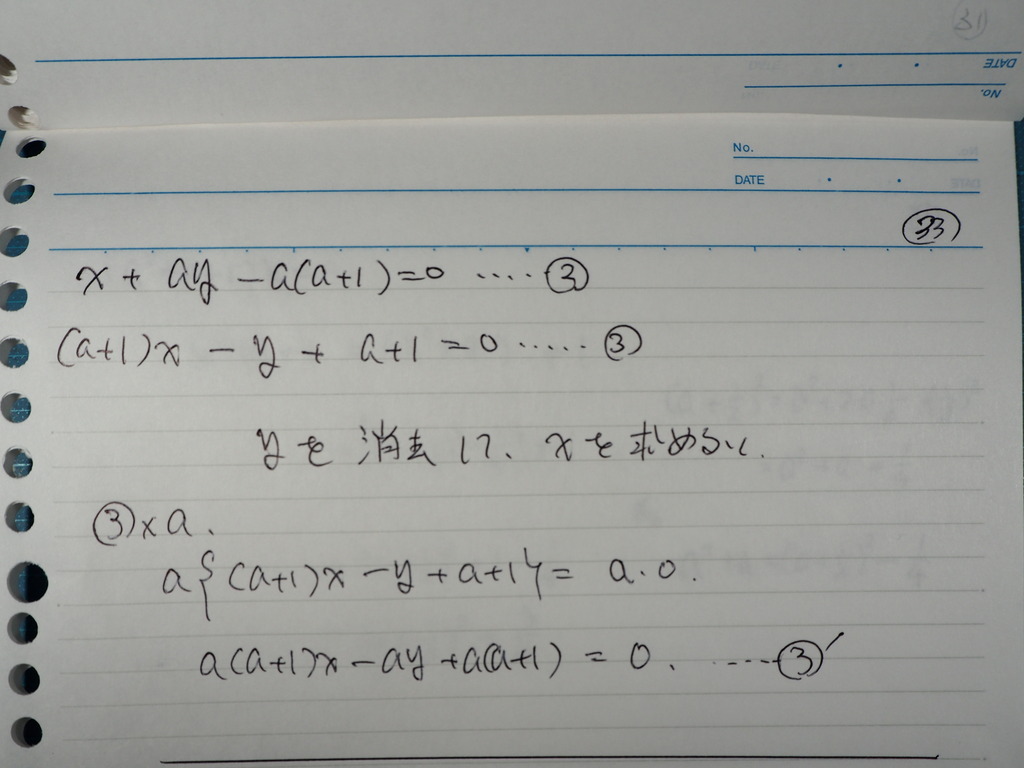 No.
DATE
No.
DATE
㉝
x + ay - a(a+1) = 0 ‥‥ ③
(a+1)x - y + a+1 = 0 ‥‥‥ ③
yを消去して、xを求めると.
③×a.
a{(a+1)x - y + a+1} = a・0.
a(a+1)x - ay + a(a+1) = 0. ‥‥‥ ③′